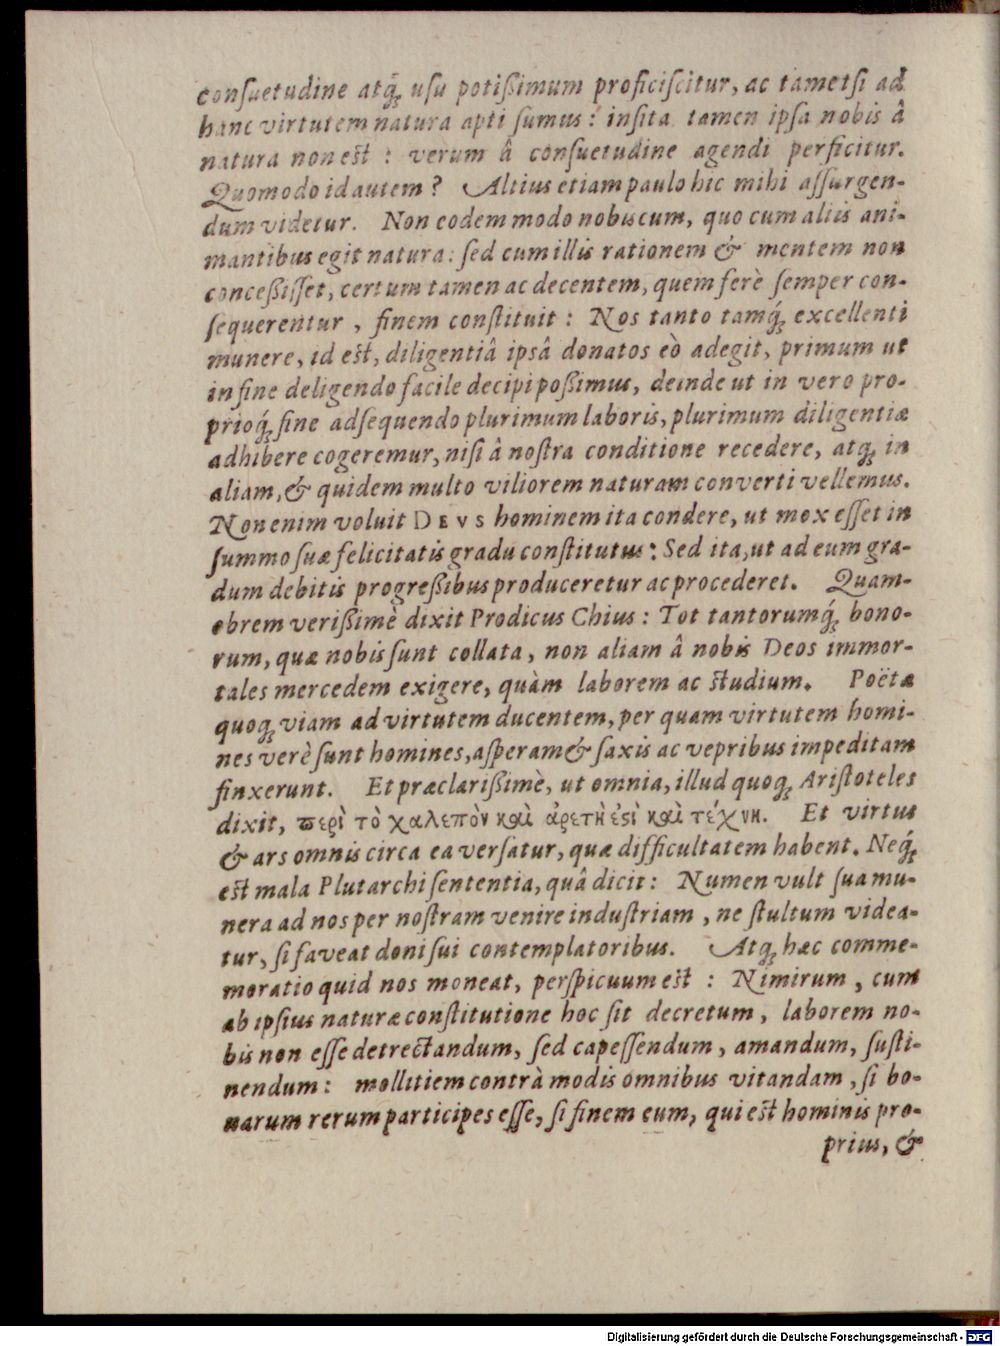 conſuetudine atq́; uſu potißimum proficiſcitur, ac tametſi ad
hanc virtutem natura apti ſumus: inſita tamen ipſa nobis â
natura non est : verum â conſuetudine agendi perficitur.
Quomodo id autem? Altius etiam paulo hic mihi aſſurgen-
dum videtur. Non eodem modo nobiscum, quo cum aliis ani-
mantibus egit natura: ſed cum illis rationem & mentem non
conceßiſſet, certum tamen ac decentem, quem ferè ſemper con-
ſequerentur, finem conſtituit: Nos tanto tamq́; excellenti
munere, id est, diligentiâ ipsâ donatos eò adegit, primum ut
in fine deligendo facile decipi poßimus, deinde ut in vero pro-
prioq́; fine adſequendo plurimum laboris, plurimum diligentiæ
adhibere cogeremur, niſi â noſtra conditione recedere, atq; in
aliam, & quidem multo viliorem naturam converti vellemus.
Non enim voluit DEVS hominem ita condere, ut mox eſſet in
ſummo ſuæ felicitatis gradu conſtitutus: Sed ita, ut ad eum gra-
dum debitis progreßibus produceretur ac procederet. Quam-
obrem verißimè dixit Prodicus Chius: Tot tantorumq́; bono-
rum, quæ nobis ſunt collata, non aliam â nobis Deos immor-
tales mercedem exigere, quàm laborem ac studium. Poëtæ
quoq; viam ad virtutem ducentem, per quam virtutem homi-
nes verè ſunt homines, aſperam & ſaxis ac vepribus impeditam
finxerunt. Et præclarißimè, ut omnia, illud quoq; Ariſtoteles
dixit, περὶ τὸ χαλεπὸν καὶ ἀρετὴ ἐςὶ καὶ τέχνη. Et virtus
& ars omnis circa ea verſatur, quæ difficultatem habent. Neq́;
est mala Plutarchi ſententia, quâ dicit: Numen vult ſua mu-
nera ad nos per noſtram venire induſtriam, ne ſtultum videa-
tur, ſi faveat doni ſui contemplatoribus. Atq; hæc comme-
moratio quid nos moneat, perſpicuum est : Nimirum, cum
ab ipſius naturæ conſtitutione hoc ſit decretum, laborem no-
bis non eſſe detrectandum, ſed capeſſendum, amandum, ſuſti-
nendum: mollitiem contrà modis omnibus vitandam, ſi bo-
narum rerum participes eſſe, ſi finem eum, qui est hominis pro-
prius, &
Digitalisierung gefördert durch die Deutsche Forschungsgemeinschaft - DFG